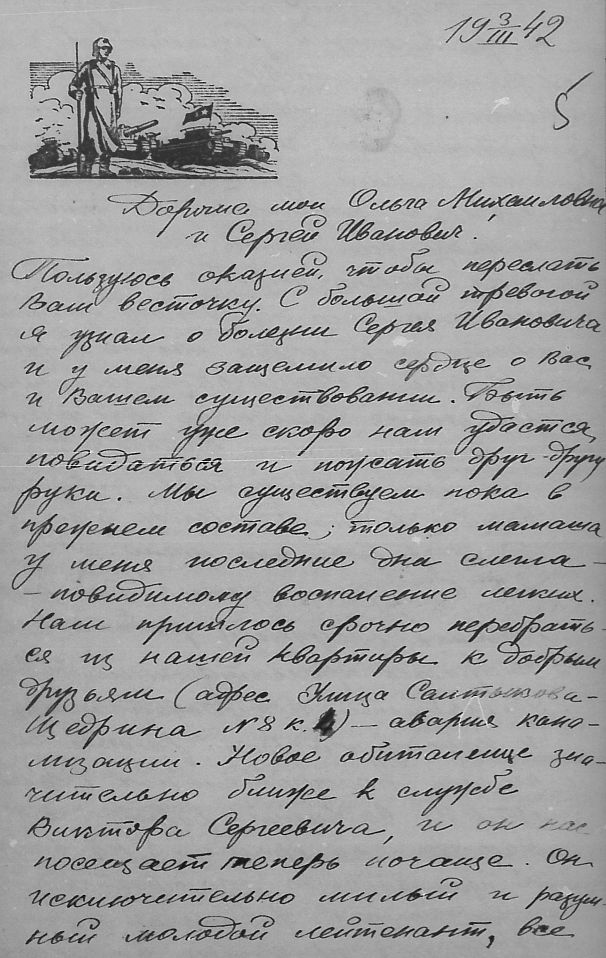 19 3/III 42
5
Дорогие мои Ольга Михаиловна
и Сергей Иванович!
Пользуюсь оказией, чтобы переслать
Вам весточку. С большой тревогой
я узнал о болезни Сергея Ивановича
и у меня защемило сердце о Вас
и Вашем существовании. Быть
может уже скоро нам удастся
повидаться и пожать друг другу
руки. Мы существуем пока в
прежнем составе; только мамаша
у меня последние дни слегла -
- повидимому воспаление легких.
Нам пришлось срочно перебрать-
ся из нашей квартиры к добрым
друзьям (адрес Улица Салтыкова-
Щедрина №8 к. ) - авария кана-
лизации. Новое обиталище зна-
чительно ближе к службе
Виктора Сергеевича, и он нас
посещает теперь почаще. Он
исключительно милый и разум-
ный молодой лейтенант, все